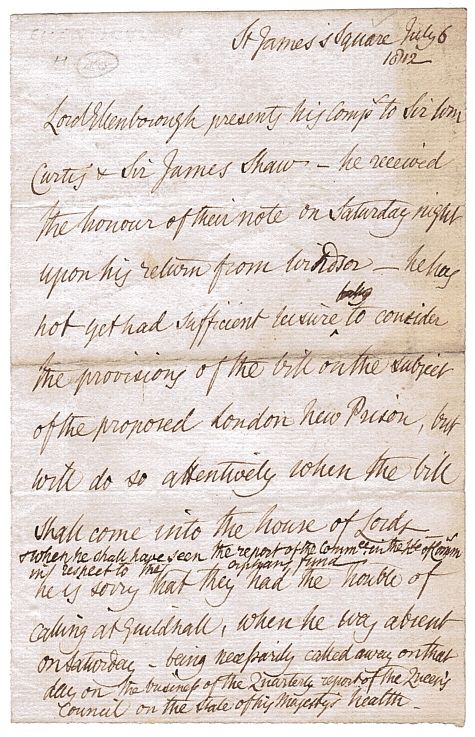 St James's Square July 6
1812
Lord Ellenborough presents his Comps to Sir Wm
Curtis & Sir James Shaw - he received
the honour of their note on Saturday night
upon his return from Windsor - he has
not yet had sufficient leisure to consider
the provisions of the bill on the subject
of the proposed London New Prison, but
will do so attentively when the bill
shall come into the house of Lords
& when he shall have seen the report of the Commee in the He of Comm
in respect to the orphans fund
he is sorry that they had the trouble of
calling at Guildhall, when he was absent
on Saturday - being necessarily called away on that
day on the business of the Quarterly report of the Queen's
Council on the state of his Majesty's health -